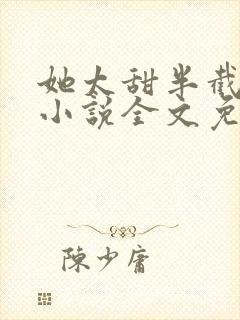 她太甜半截
小说全文免
陳少庸